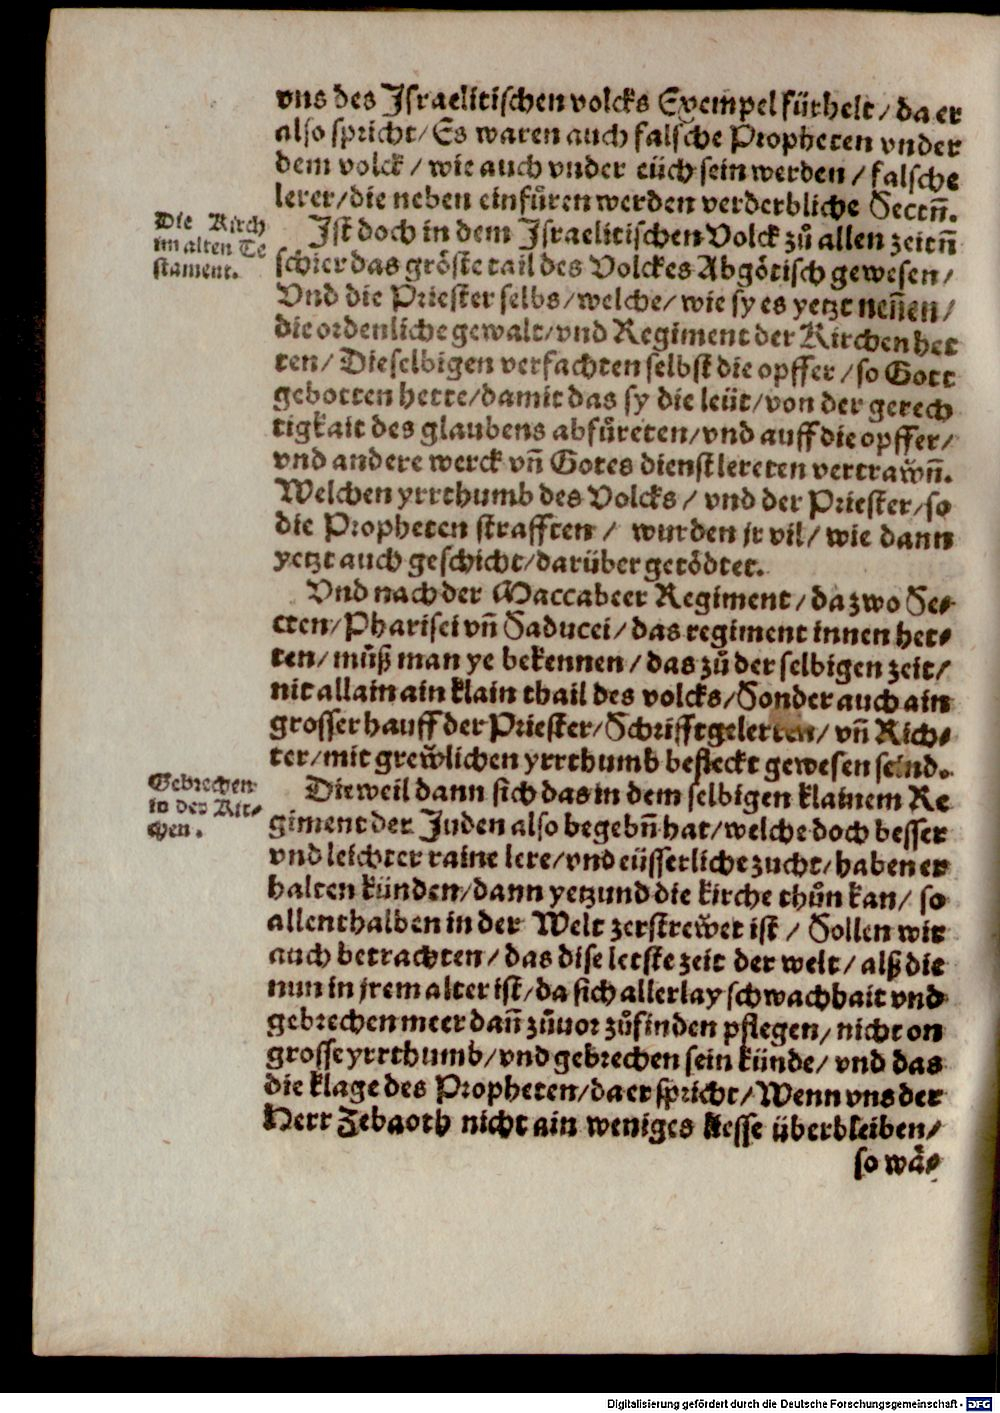 vns des Israelitischen volcks Exempel fürhelt / da er
also spricht / Es waren auch falsche Propheten vnder
dem volck / wie auch vnder eüch sein werden / falsche
lerer / die neben einfůren werden verderbliche Sectn̄.
Die Kirch
im alten Te
stament.
Ist doch in dem Israelitischen Volck zů allen zeitn̄
schier das gröste tail des Volckes Abgötisch gewesen /
Vnd die Priester selbs / welche / wie sy es yetzt nen̄en /
die ordenliche gewalt / vnd Regiment der Kirchen het
ten / Dieselbigen verfachten selbst die opffer / so Gott
gebotten hette / damit das sy die leüt / von der gerech
tigkait des glaubens abfůreten / vnd auff die opffer /
vnd andere werck vn̄ Gotes dienst lereten vertraẅn̄.
Welchen yrrthumb des Volcks / vnd der Priester / so
die Propheten strafften / wurden jr vil / wie dann
yetzt auch geschicht / darüber getödtet.
Vnd nach der Maccabeer Regiment / da zwo Se⸗
cten / Pharisei vn̄ Saducei / das regiment innen het⸗
ten / můß man ye bekennen / das zů der selbigen zeit /
nit allain ain klain thail des volcks / Sonder auch ain
grosser hauff der Priester / Schrifftgelerten / vn̄ Rich⸗
ter / mit greẅlichen yrrthumb befleckt gewesen seind.
Gebrechen
in der Kir⸗
chen.
Die weil dann sich das in dem selbigen klainem Re
giment der Juden also begebn̄ hat / welche doch besser
vnd leichter raine lere / vnd eüsserliche zucht / haben er
halten künden / dann yetzund die kirche thůn kan / so
allenthalben in der Welt zerstreẅet ist / Sollen wir
auch betrachten / das dise letste zeit der welt / alß die
nun in jrem alter ist / da sich allerlay schwachhait vnd
gebrechen meer dan̄ zůuor zůfinden pflegen / nicht on
grosse yrrthumb / vnd gebrechen sein künde / vnd das
die klage des Propheten / da er spricht / Wenn vns der
Herr Zebaoth nicht ain weniges liesse überbleiben /
so wä⸗
Digitalisierung gefördert durch die Deutsche Forschungsgemeinschaft - DFG